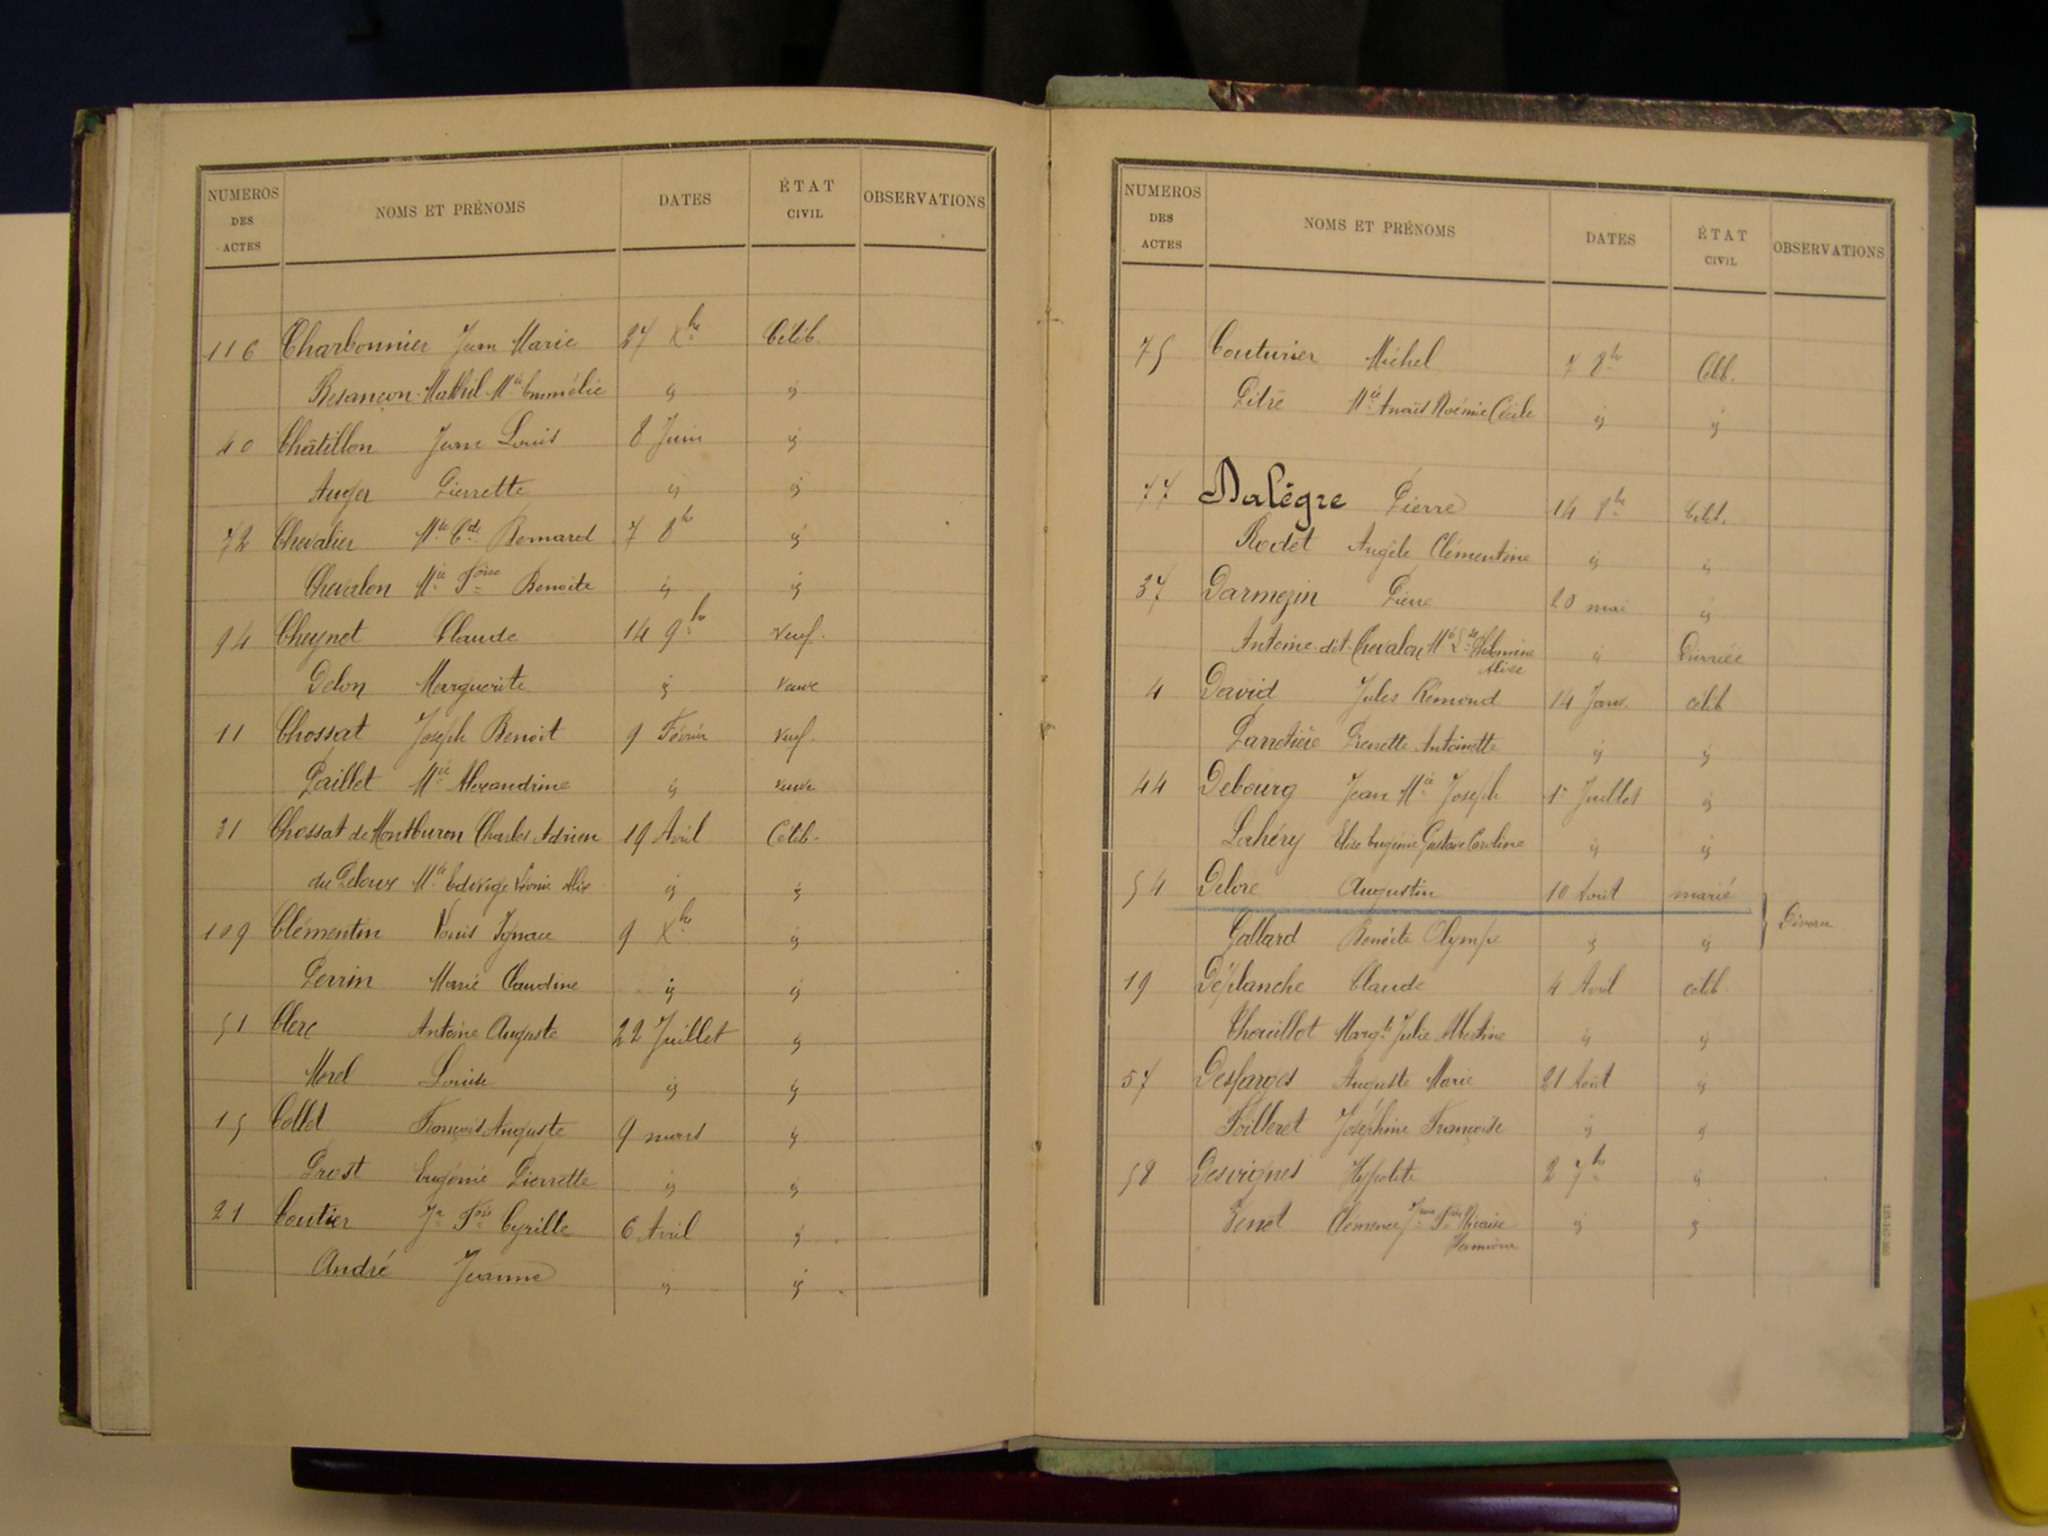 NUMEROS DES ACTES NOMS ET PRÉNOMS DATES ÉTAT CIVIL OBSERVATIONS
116 Charbonnier Jean Marie 27 Xbre Célib.
Besançon Mathil. Mie Emmélie " "
40 Châtillon Jean Louis 8 Juin "
Auger Pierrette " "
72 Chevalier Mie Cde Bernard 7 8bre "
Chevalon Mie Foise Benoite " "
94 Cheynet Claude 14 9bre veuf.
Delon Marguerite " veuve
11 Chossat Joseph Benoit 9 Février veuf.
Paillet Mie Alexandrine " veuve
31 Chossat de Montburon Charles Adrien 19 Avril Célib.
du Peloux Mie Edwige Léonie Alix " "
109 Clémentin Louis Ignace 9 Xbre "
Perrin Marie Claudine " "
51 Clerc Antoine Auguste 22 Juillet "
Morel Louise " "
15 Collet François Auguste 9 mars "
Prost Eugénie Pierrette " "
21 Coutier Jn Fois Cyrille 6 Avril "
André Jeanne " "
NUMEROS DES ACTES NOMS ET PRÉNOMS DATES ÉTAT CIVIL OBSERVATIONS
75 Couturier Michel 7 8bre Célib.
Pitre Mie Anaïs Noémie Cécile " "
77 Dalègre Pierre 14 8bre Célib.
Rodet Angèle Clémentine " "
37 Darmezin Pierre 20 mai "
Antoine dit Chevalon Philomène " Divorcée
Alice
4 David Jules Rémond 14 Janv. célib
Panetière Pierrette Antoinette " "
44 Debourg Jean Mie Joseph 1er Juillet "
Lahéry Elise Eugénie Gustave Caroline " "
54 Delore Augustin 10 Août marié
Gallard Benoite Olympe " " Divorce
19 Déplanche Claude 4 Avril célib.
Thorillot Margte Julie Albertine " "
57 Desfarges Auguste Marie 21 Août "
Foilleret Joséphine Françoise " "
58 Desvignes Hypolite 2 7bre "
Genet Clémence " "
Herminie